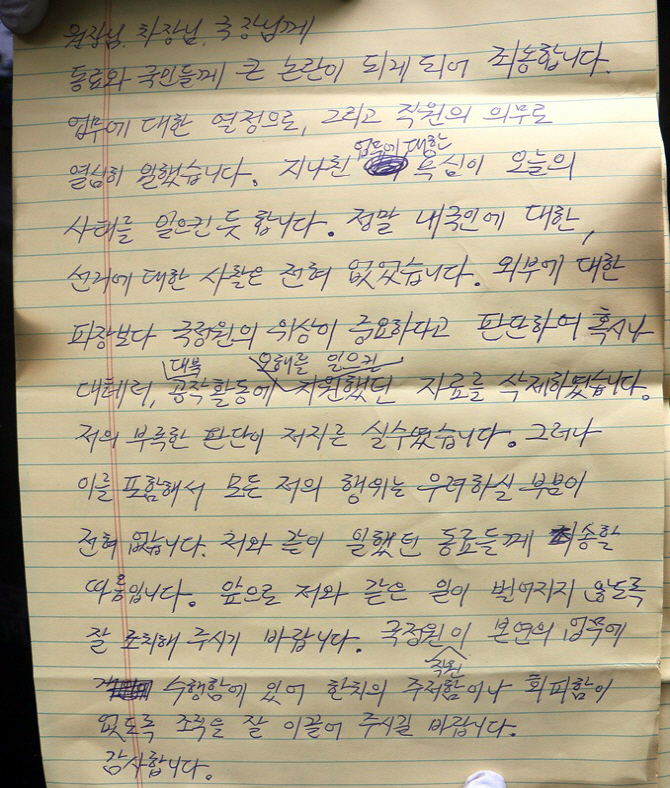 원장님, 차장님, 국장님께
동료와 국민들께 큰 논란이 되게 되어 죄송합니다.
업무에 대한 열정으로, 그리고 직원의 의무로
열심히 일했습니다. 지나친 업무에 대한 욕심이 오늘의
사태를 일으킨 듯 합니다. 정말 내국민에 대한,
선거에 대한 사찰은 전혀 없었습니다. 외부에 대한
파장보다 국정원의 위상이 중요하다고 판단하여 혹시나
대북 오해를 일으킨
대테러, 공작활동에 지원했던 자료를 삭제하였습니다.
저의 부족한 판단이 저지른 실수였습니다. 그러나
이를 포함해서 모든 저의 행위는 우려하실 부분이
전혀 없습니다. 저와 같이 일했던 동료들께 죄송할
따름입니다. 앞으로 저와 같은 일이 벌어지지 않도록
잘 조치해 주시기 바랍니다. 국정원이 본연의 업무에
직원
수행함에 있어 한치의 주저함이나 회피함이
없도록 조직을 잘 이끌어 주시길 바랍니다.
감사합니다.